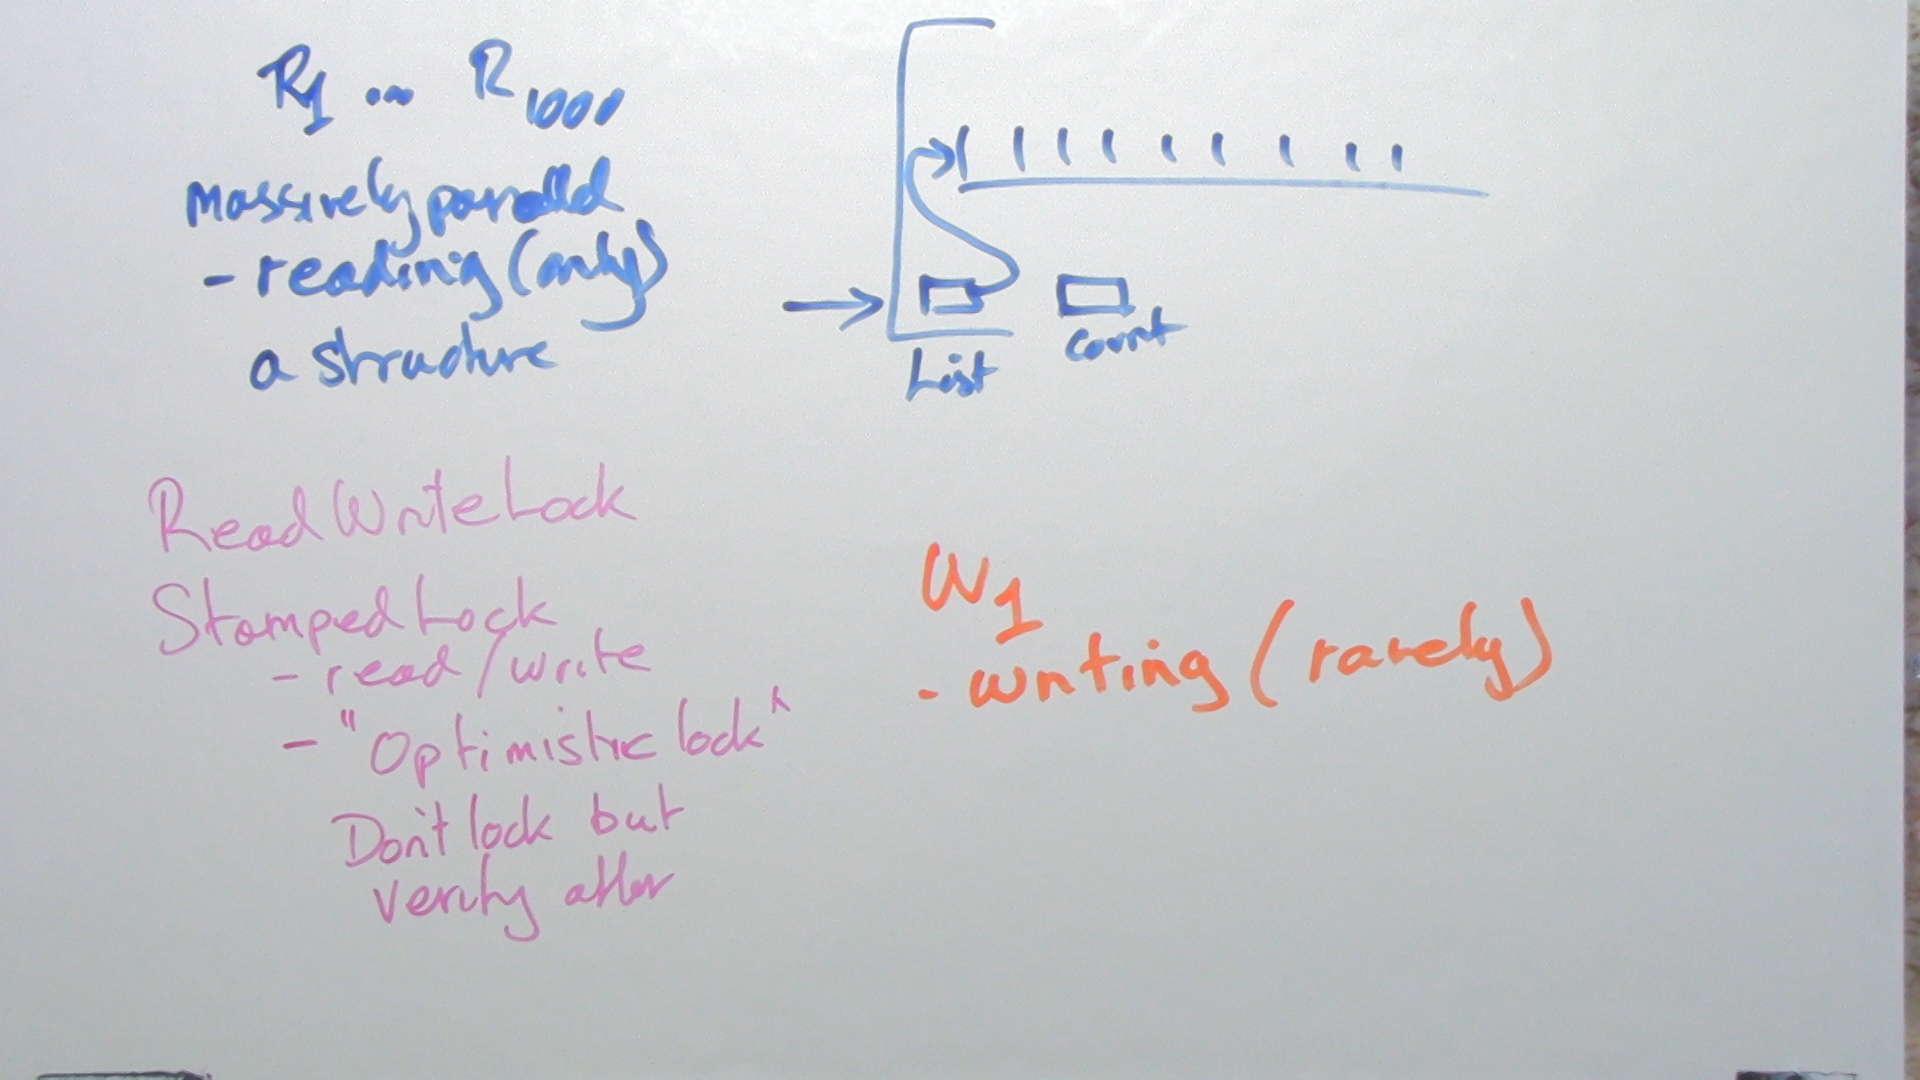 R1 ... R1000
massively parallel
- reading (only)
a structure
List
count
ReadWriteLock
StampedLock
- read/write
- "Optimistic lock"
Don't lock but
verify after
W1
- writing (rarely)